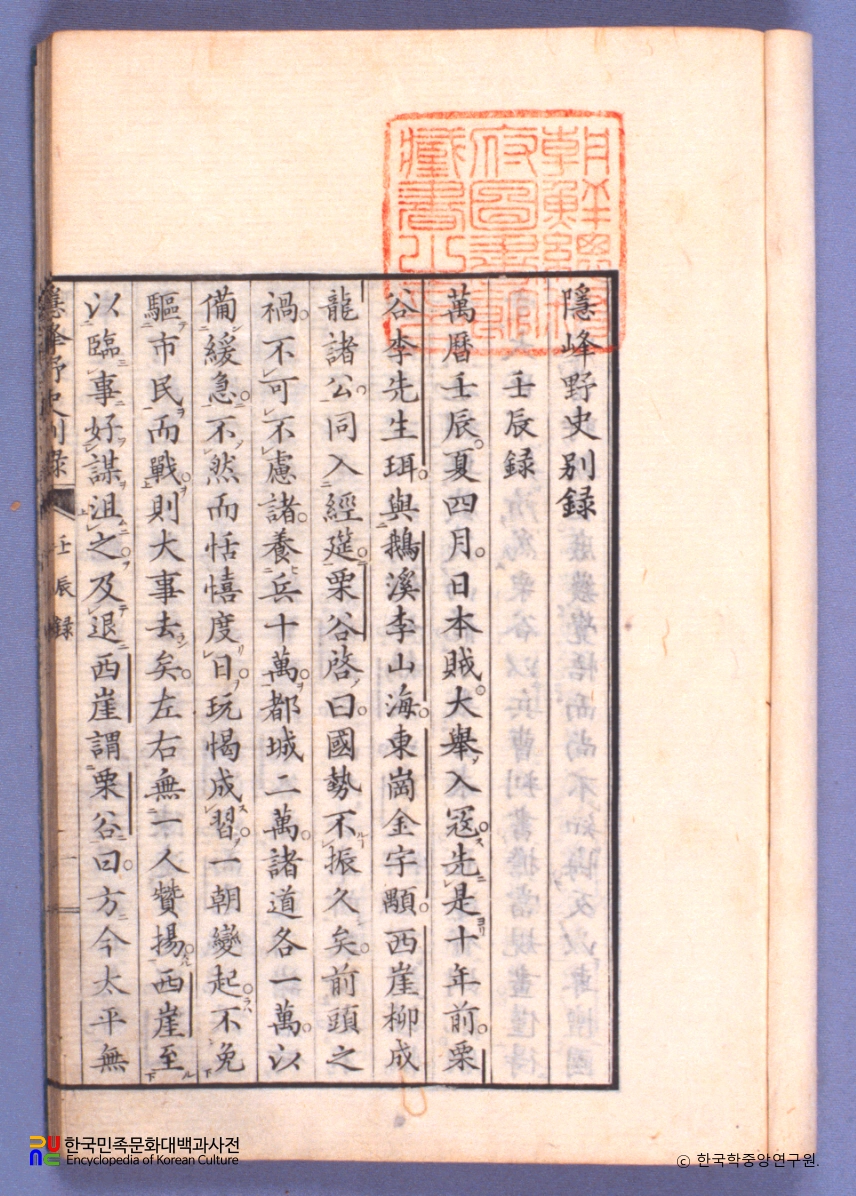 隱峰野史別録
壬辰録
萬曆壬辰夏四月日本賊大舉入寇先是十年前栗
谷李先生珥與鵝溪李山海東崗金宇顒西崖柳成
龍諸公同入經筵栗谷啓曰國勢不振久矣前頭之
禍不可不慮諸養兵十萬都城二萬諸道各一萬以
備緩急不然而恬憘度日玩愒成習一朝變起不免
驅市民而戰則大事去矣左右無一人贊揚西崖至
以臨事好謀沮之及退西崖謂栗谷曰方今太平無
隱峰野史別録
壬辰録
한국민족문화대백과사전
Encyclopedia of Korean Culture
© 한국학중앙연구원.